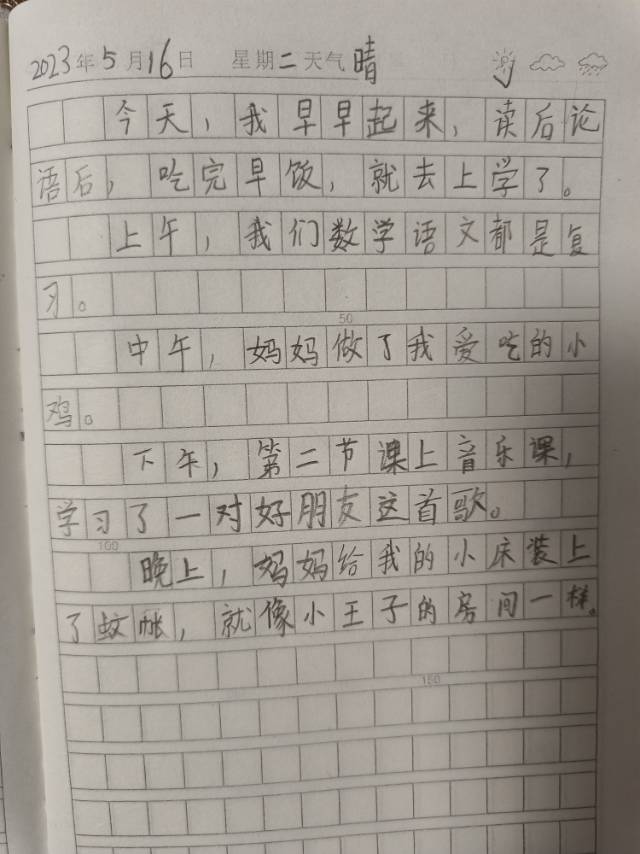 2023年5月16日 星期二天气晴
今天，我早早起来，读后论
语后，吃完早饭，就去上学了。
上午，我们数学语文都是复
习。
50
中午，妈妈做了我爱吃的小
鸡。
下午，第二节课上音乐课，
学习了一对好朋友这首歌。
100
晚上，妈妈给我的小床装上
了蚊帐，就像小王子的房间一样。
150